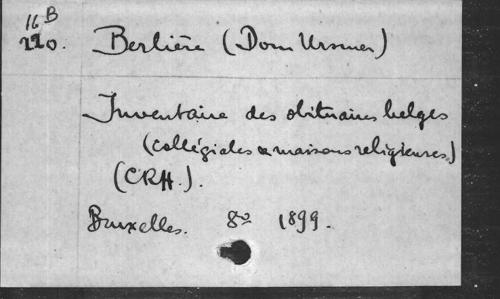 16 B
220.
Berlière (Dom Ursmer)
Inventaire des obituaires belges
(collégiales & maisons religieuses)
(CRH.).
Bruxelles. 8º 1899.